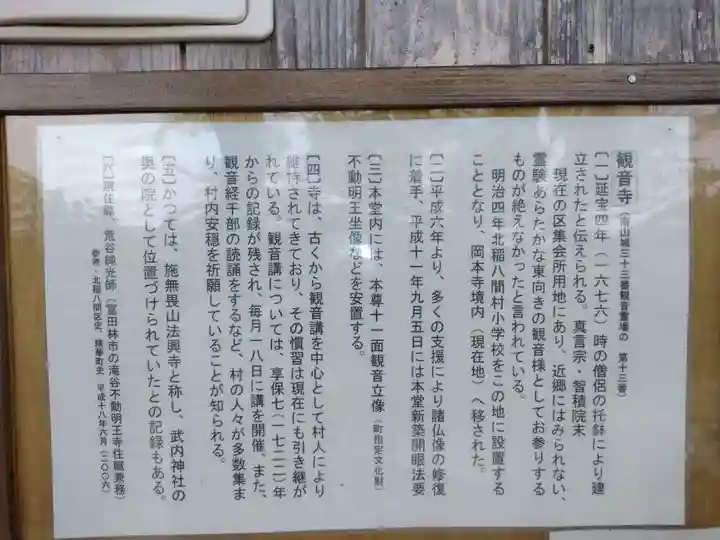 観音寺(南山城三十三番観音霊場の 第十三番)
[一]延宝四年(一六七六)時の僧侶の托鉢により建
立されたと伝えられる。真言宗・智積院末
現在の区集会所用地にあり、近郷にはみられない、
霊験あらたかな東向きの観音様としてお参りする
ものが絶えなかったと言われている。
明治四年北稲八間村小学校をこの地に設置する
こととなり、岡本寺境内(現在地)へ移された。
[二]平成六年より、多くの支援により諸仏像の修復
に着手、平成十一年九月五日には本堂新築開眼法要
[三]本堂内には、本尊十一面観音立像(町指定文化財)
不動明王坐像などを安置する。
[四]寺は、古くから観音講を中心として村人により
維持されてきており、その慣習は現在にも引き継が
れている。観音講については、享保七(一七二二)年
からの記録が残され、毎月一八日に講を開催、また、
観音経千部の読誦をするなど、村の人々が多数集ま
り、村内安穏を祈願していることが知られる。
[五]かつては、施無畏山法興寺と称し、武内神社の
奥の院として位置づけられていたとの記録もある。
[六]現住職、荒谷純光師(富田林市の滝谷不動明王寺住職兼務)
参考・北稲八間区史、精華町史 平成十八年六月(二〇〇六)